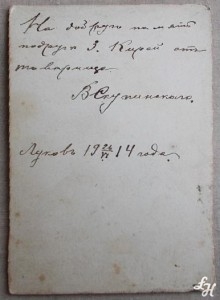 На добрую память
подруге З. Кирей отъ
товарища
В Скупинскаго.
Луковъ 19 24/VI 14 года.
LH